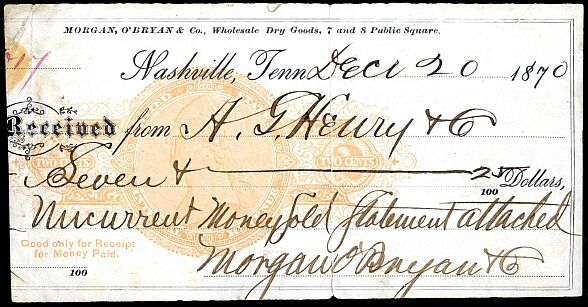 MORGAN, O'BRYAN & Co., Wholesale Dry Goods, 7 and 8 Public Square.
Nashville, Tenn Dec 20 1870
Received from A. G. Henry & Co
TWO CENTS TWO CENTS
Seven & 25/100 Dollars,
Uncurrent Money sold Statement attached
Good only for Receipt
for Money Paid.
Morgan O'Bryan & Co
100